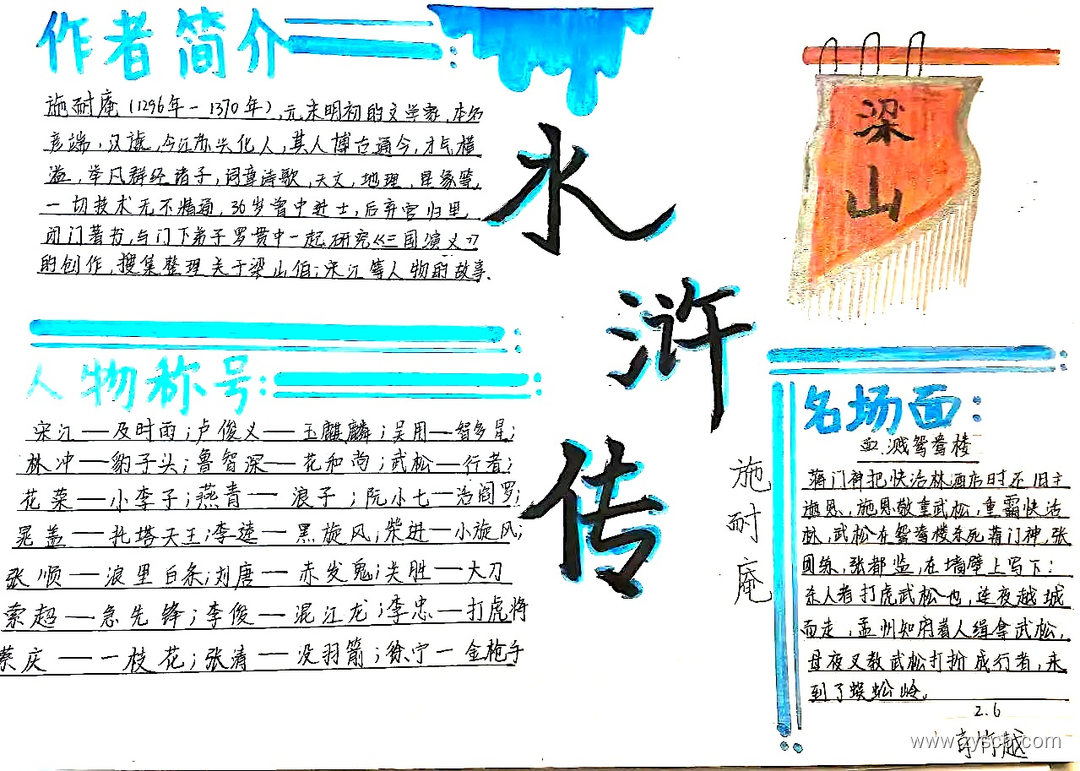 作者简介
施耐庵(1296年－1370年),元末明初的文学家,本名
彦端,汉族,今江苏兴化人,其人博古通今,才气横
溢,举凡群经诸子,词章诗歌,天文,地理,星象等,
一切技术无不精通,36岁曾中进士,后弃官归里,
闭门著书,与门下弟子罗贯中一起研究《三国演义》
的创作,搜集整理关于梁山伯;宋江等人物的故事.
水
浒
传
施耐庵
梁
山
人物称号:
宋江——及时雨;卢俊义——玉麒麟;吴用—智多星;
林冲——豹子头;鲁智深——花和尚;武松—行者;
花荣——小李子;燕青——浪子;阮小七—活阎罗;
晁盖——托塔天王;李逵—黑旋风;柴进—小旋风;
张顺——浪里白条;刘唐——赤发鬼;关胜—大刀
索超——急先锋;李俊——混江龙;李忠—打虎将
蔡庆——一枝花;张清——没羽箭;徐宁—金枪手
名场面:
血溅鸳鸯楼
蒋门神把快活林酒店时不旧主
施恩,施恩敬重武松,重霸快活
林,武松在鸳鸯楼杀死蒋门神,张
团练,张都监,在墙壁上写下:
杀人者打虎武松也,连夜越城
而走,孟州知府着人缉拿武松,
母夜叉教武松打扮成行者,来
到了蜈蚣岭。
2.6
www.zyscb.com